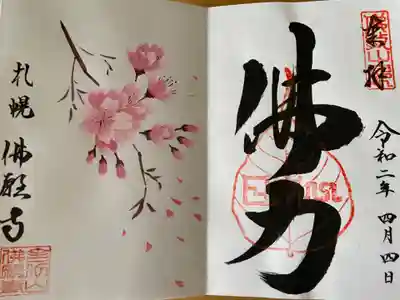 奉拝
佛力
令和二年 四月四日
札幌 佛願寺